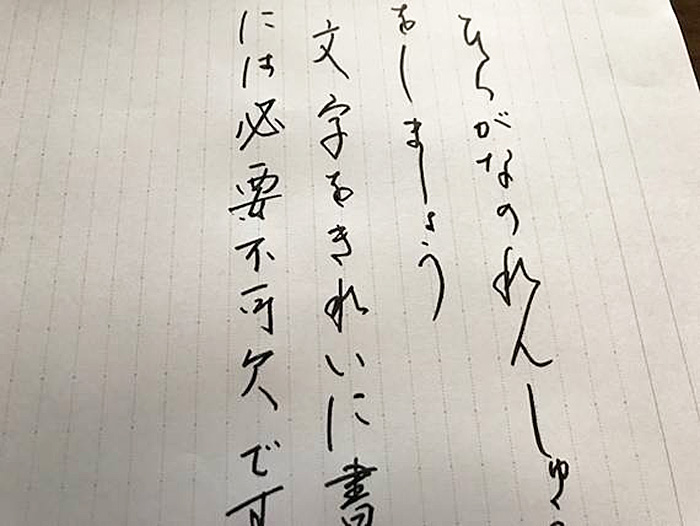 ひらがなのれんしゅう
をしましょう
文字をきれいに書
には必要不可欠です